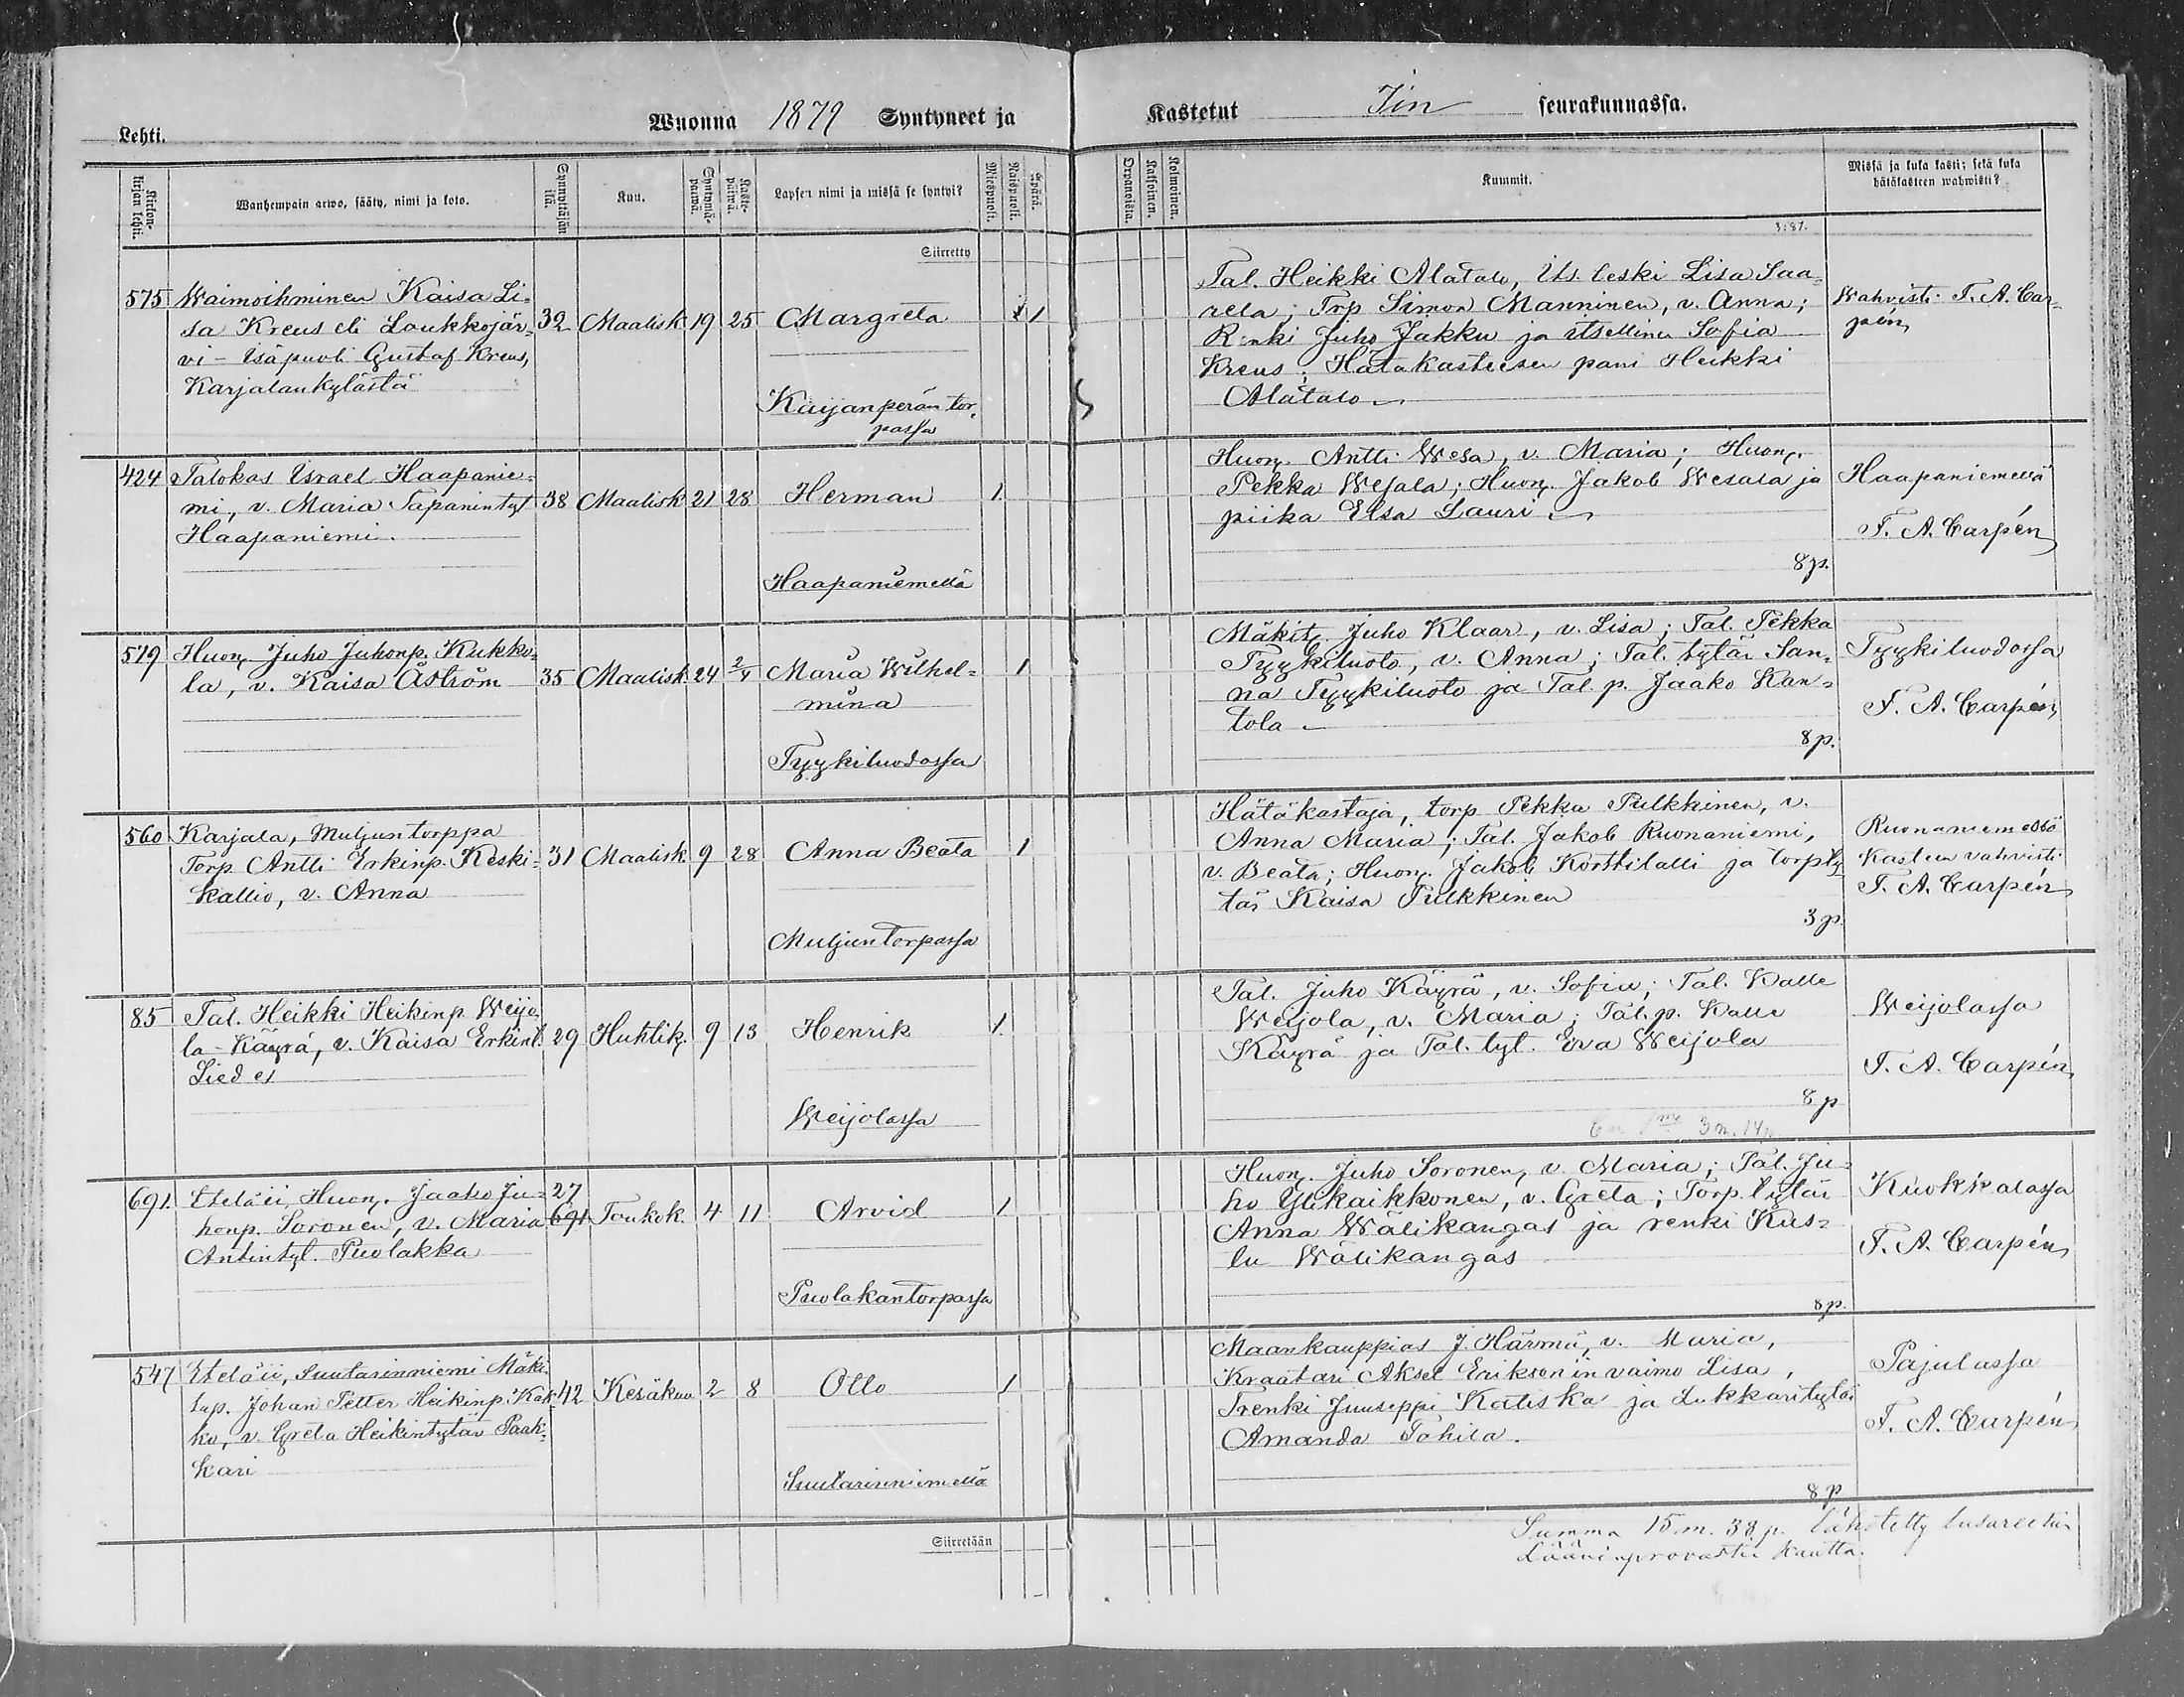 Wuonna 1879 Syntyneet ja
Kastetut Iin seurakunnassa.
Lehti.
Kirkon-kirjan lehti.
Wanhempain arwo, sääty, nimi ja koto.
Synnyttäjän ikä.
Kuu.
Syntymä-päiwä.
Kaste-päiwä.
Lapsen nimi ja missä se syntyi?
Miespuoli.
Naispuoli.
Äpärä.
Orpanoista.
Kaksoinen.
Kolmoinen.
Kummit.
Missä ja kuka kasti; sekä kuka
hätäkasteen wahwisti?
Siirretty
3:87.
575 Waimoihminen Kaisa Li-
sa Kreus eli Loukkojär-
vi - Isäpuoli Gustaf Kreus,
Karjalankylästä
32 Maalisk 19 25 Margreta 1 1
Kaijanperän tor-
passa
Tal. Heikki Alatalo, Its. leski Lisa Saa-
rela; Trp Simon Manninen, v. Anna;
Renki Juho Jakku ja itsellinen Sofia
Kreus; Hätäkasteesen pani Heikki
Alatalo
Wahvisti F. A. Car-
pén
424 Talokas Israel Haapanie-
mi, v. Maria Tapanintyt
Haapaniemi.
38 Maalisk 21 28 Herman 1
Haapaniemellä
Huon. Antti Wesa, v. Maria; Huon.
Pekka Wesala; Huon. Jakob Wesala ja
piika Elsa Lauri
8 p.
Haapaniemellä
F. A. Carpén
519 Huon Juho Juhonp. Kukko-
la, v. Kaisa Åström
35 Maalisk 24 2/4 Maria Wilhel-
mina 1
Tyykiluodossa
Mäkit. Juho Klaar, v. Lisa; Tal. Pekka
Tyykiluoto, v. Anna; Tal. tytär San-
na Tyykiluoto ja Tal. p. Jaako Kan-
tola
8 p.
Tyykiluodossa
F. A. Carpén
560 Karjala, Muljuntorppa
Torp. Antti Erkinp. Keski-
kallio, v. Anna
31 Maalisk. 9 28 Anna Beata 1
Muljuntorpassa
Hätäkastaja, torp Pekka Pulkkinen, v.
Anna Maria; Tal. Jakob Ruonaniemi,
v. Beata; Huon. Jakob Korttilalli ja torp ty-
tär Kaisa Pulkkinen
3 p.
Ruonaniemessä
Kasteen vahvisti
F. A. Carpén
85 Tal. Heikki Heikinp Weijo-
la-Käyrä, v. Kaisa Erkint.
Liedes
29 Huhtik. 9 13 Henrik 1
Weijolassa
Tal. Juho Käyrä, v. Sofia; Tal. Kalle
Weijola, v. Maria; Tal. p. Kalle
Käyrä ja Tal. tyt. Eva Weijola
8 p
3 m. 14 p
Weijolassa
F. A. Carpén
691. Eteläii, Huon. Jaako Ju-
honp. Soronen, v. Maria
Antintyt. Puolakka
27
691 Toukok. 4 11 Arvid 1
Puolakantorpassa
Huon. Juho Soronen, v. Maria; Tal. Ju-
ho Ylikaikkonen, v. Greta; Torp. tytär
Anna Wälikangas ja renki Kus-
lu Wälikangas
8 p.
Kuokkalassa
F. A. Carpén
547 Eteläii, Suutarinniemi Mäki-
tup. Johan Petter Heikinp. Kak-
ko, v. Greta Heikintytär Paak-
kari
42 Kesäkuu 2 8 Otto 1
Suutarinniemellä
Maankauppias J. Härmä, v. Maria,
Kraatari Aksel Eriksonin vaimo Lisa,
Trenki Juuseppi Katiska ja Lukkarityttö
Amanda Tähilä.
8 p
Pajulassa
F. A. Carpén
Siirretään
Summa 15 m. 38 p. lähetetty
Lääninprovastin kautta.